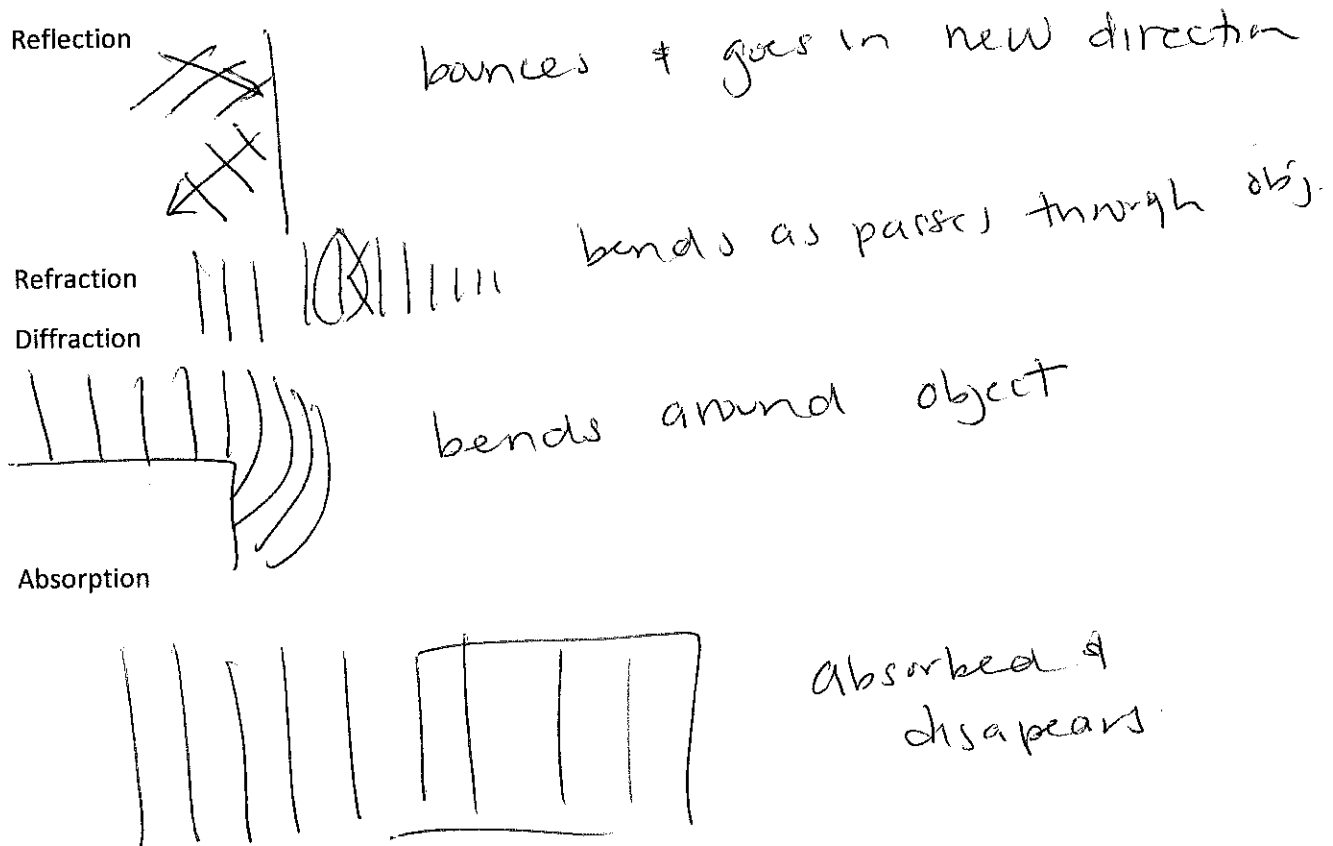 Reflection
bounces & goes in new direction
bends as passes through obj.
Refraction
Diffraction
bends around object
Absorption
absorbed &
disapears